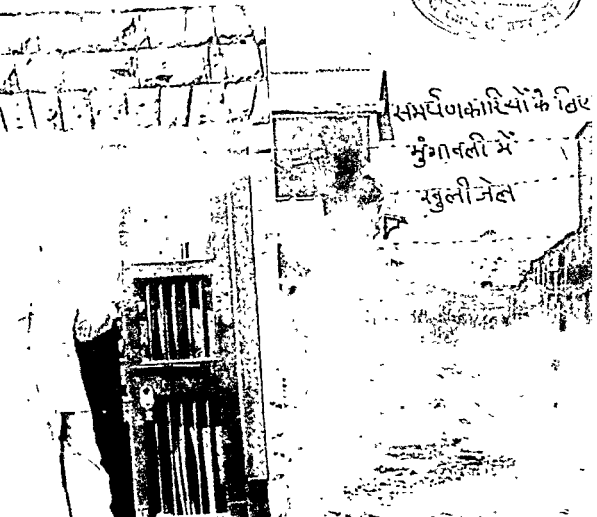 समर्पणकारियों के लिए
मुंगावली में
खुली जेल